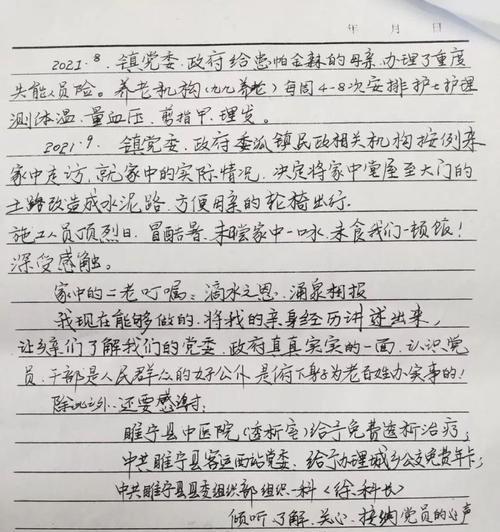 年 月 日
2021.8. 镇党委、政府给患帕金森的母亲办理了重度
失能人员险。养老机构(九九养老)每周4-8次安排护士护理
测体温、量血压、剪指甲、理发。
2021.9. 镇党委、政府委派镇民政相关机构按例来
家中走访,就家中的实际情况,决定将家中堂屋至大门的
土路改造成水泥路,方便母亲的轮椅出行。
施工人员顶烈日、冒酷暑,未喝家中一口水,未食我们一顿饭!
深受感触。
家中的二老叮嘱:滴水之恩、涌泉相报
我现在能够做的,将我的亲身经历讲述出来,
让乡亲们了解我们的党委、政府真真实实的一面,认识党
员、干部是人民群众的好公仆,是俯下身子为老百姓办实事的!
除此之外,还要感谢:
睢宁县中医院(透析室)给予免费透析治疗;
中共睢宁县客运西站党委、给予办理城乡公交免费年卡;
中共睢宁县县委组织部组织一科(徐科长)
倾听、了解、关心、接纳党员的心声